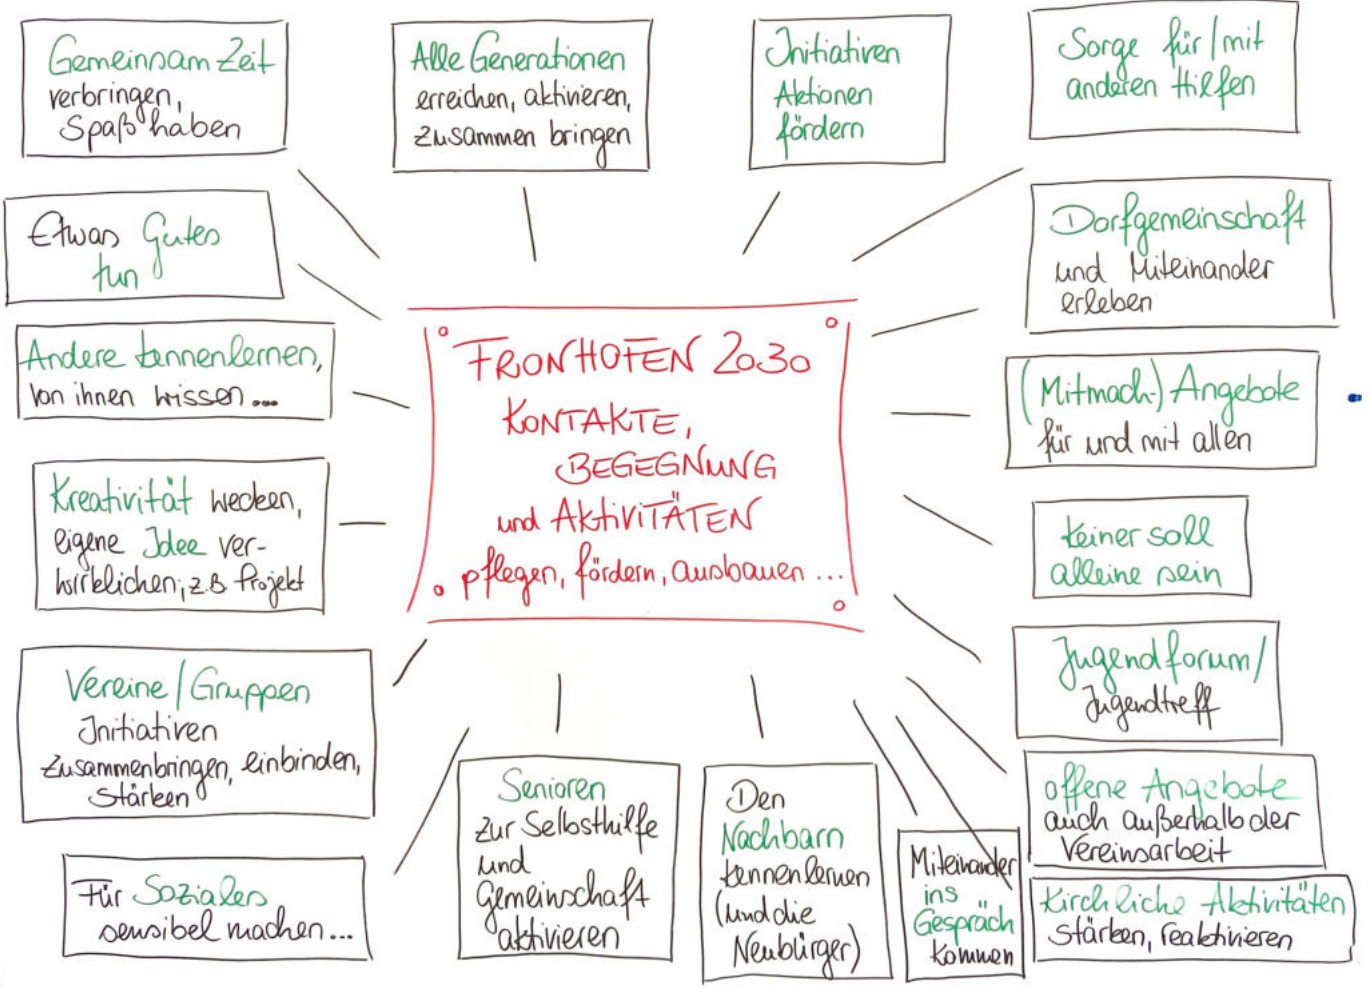 Gemeinsam Zeit
verbringen,
Spaß haben
Alle Generationen
erreichen, aktivieren,
zusammen bringen
Initiativen
Aktionen
fördern
Sorge für/mit
anderen Hilfen
Etwas Gutes
tun
Dorfgemeinschaft
und Miteinander
erleben
Andere kennenlernen,
von ihnen wissen ...
FRONHOFEN 2030
KONTAKTE,
BEGEGNUNG
und AKTIVITÄTEN
pflegen, fördern, ausbauen ...
(Mitmach-) Angebote
für und mit allen
Kreativität wecken,
eigene Idee ver-
wirklichen, z.B Projekt
keiner soll
alleine sein
Jugendforum/
Jugendtreff
Vereine/Gruppen
Initiativen
zusammenbringen, einbinden,
stärken
Senioren
zur Selbsthilfe
und
Gemeinschaft
aktivieren
Den
Nachbarn
kennenlernen
(und die
Neubürger)
Miteinander
ins
Gespräch
kommen
offene Angebote
auch außerhalb der
Vereinsarbeit
Für Soziales
sensibel machen ...
Kirchliche Aktivitäten
stärken, reaktivieren